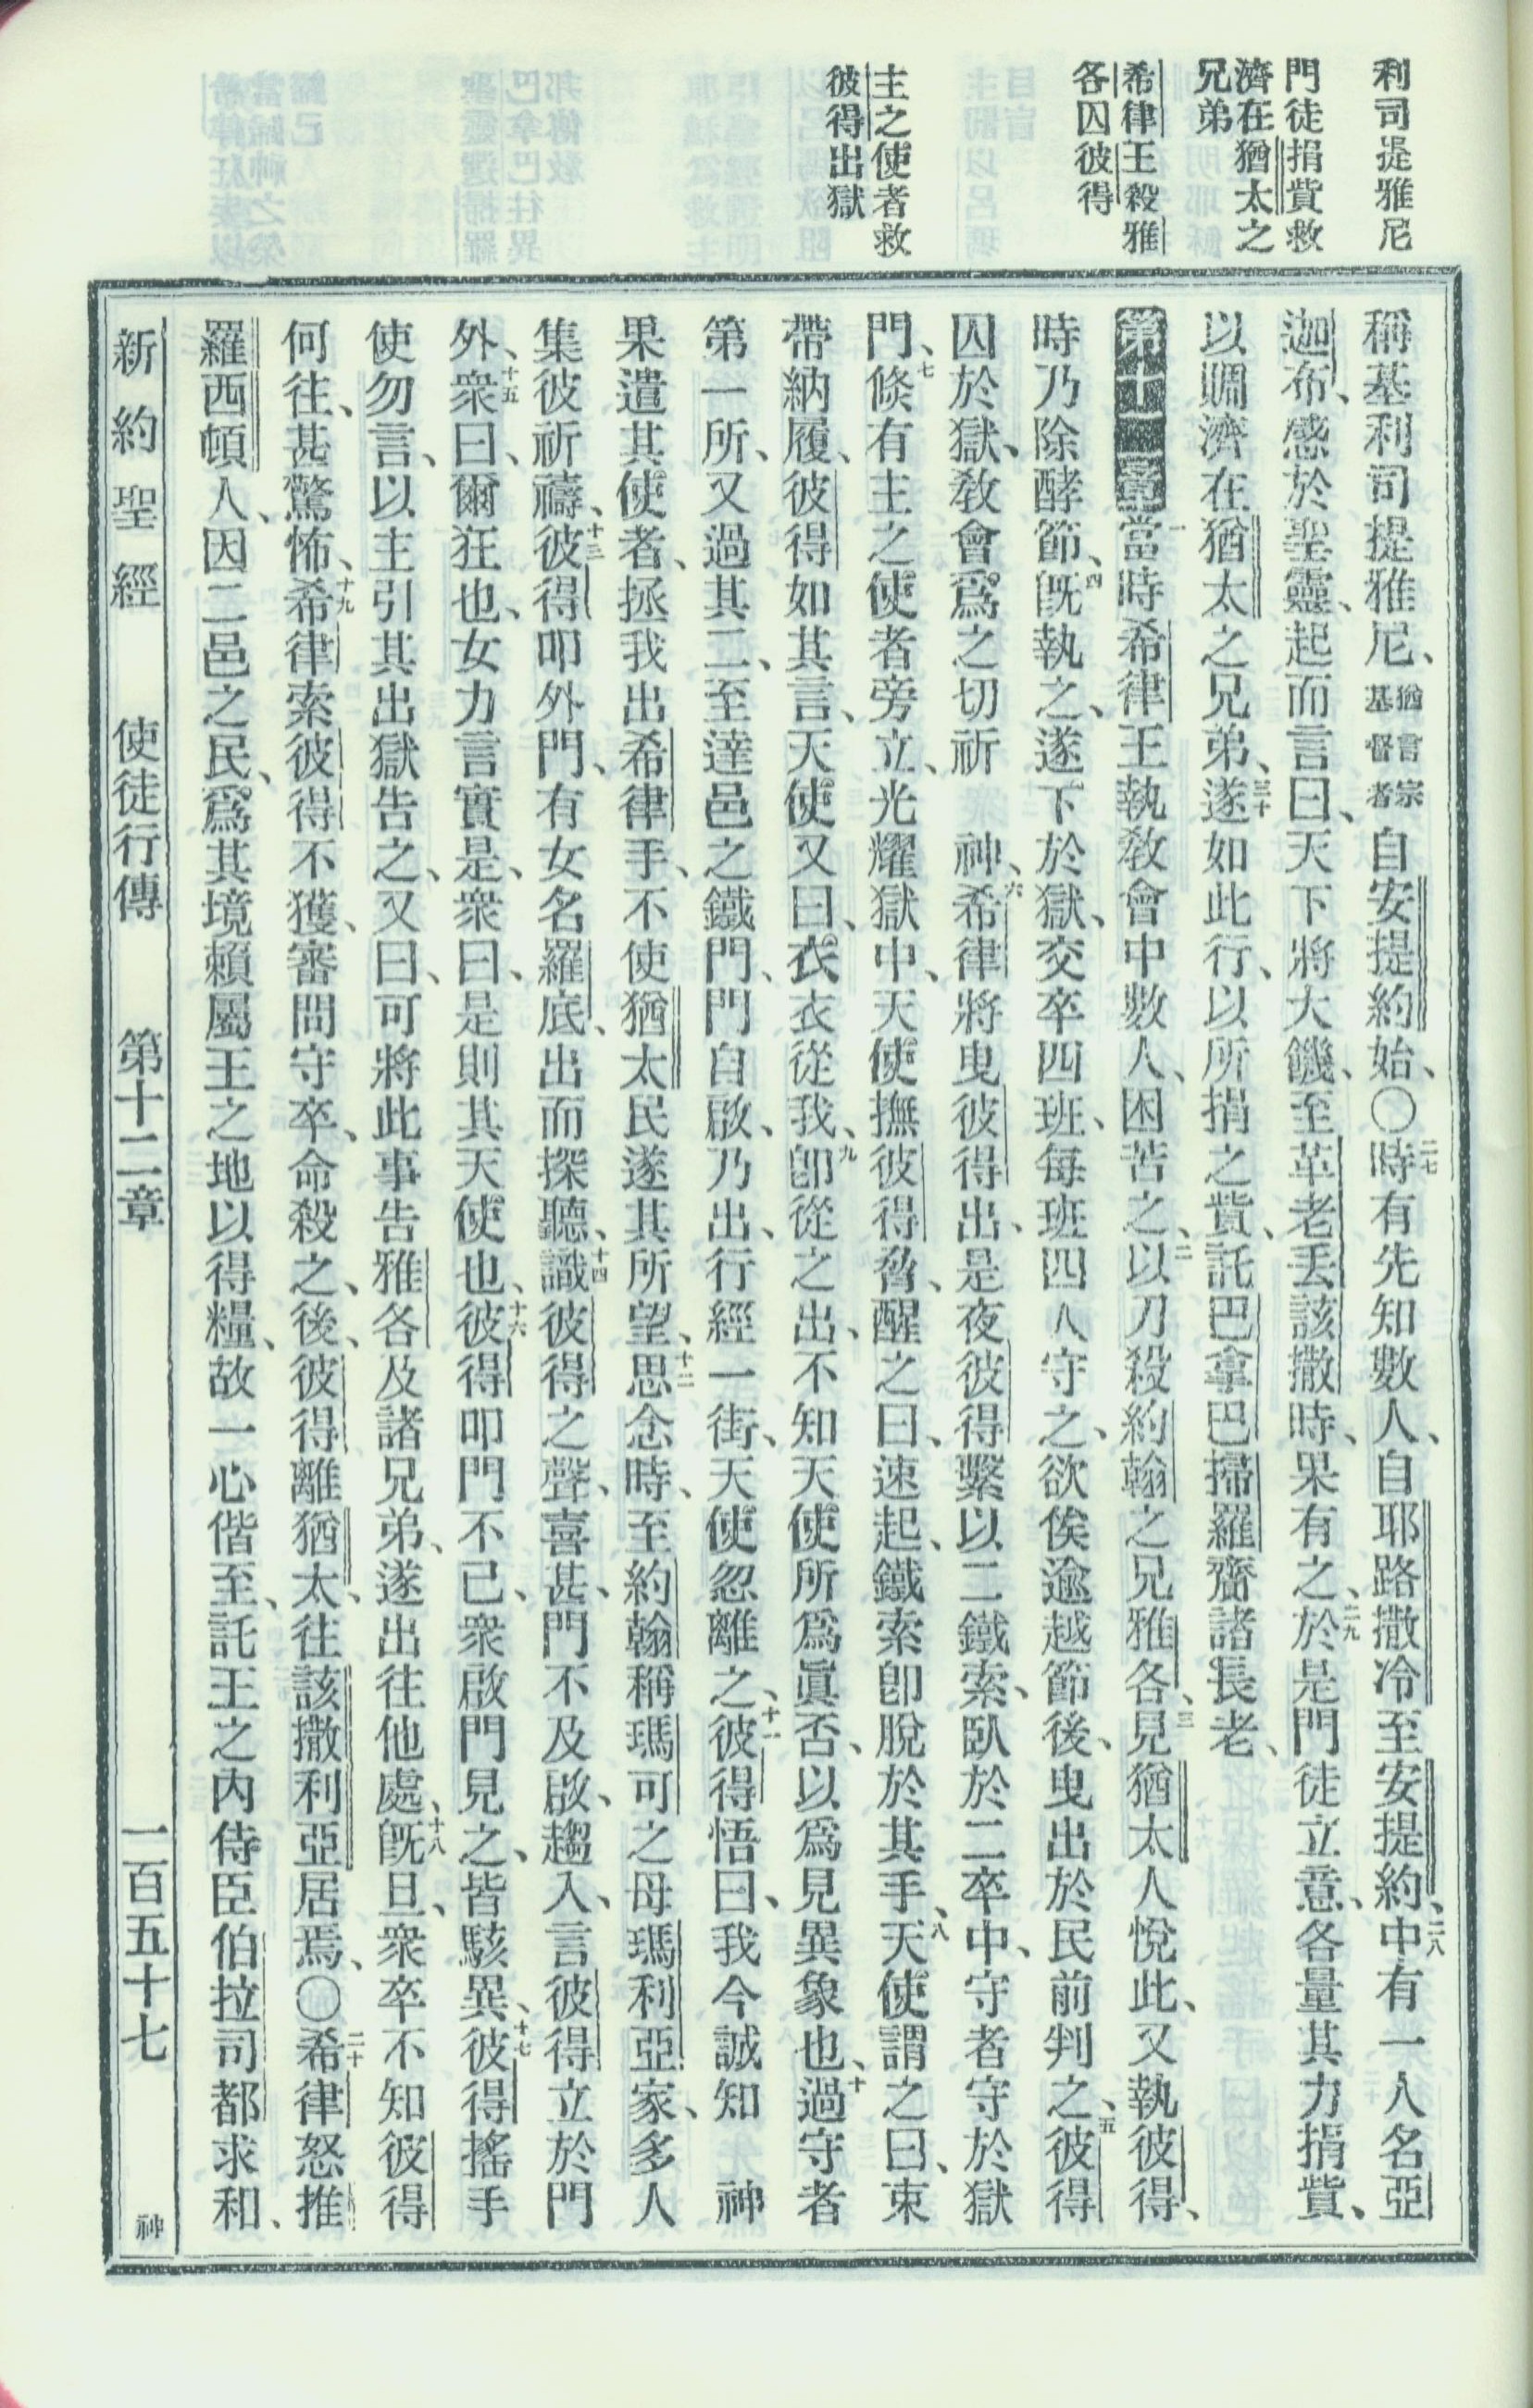 利司提雅尼
門徒捐貲救
濟在猶太之
兄弟
希律王殺雅
各囚彼得
主之使者救
彼得出獄
稱基利司提雅尼、猶言宗基督者自安提約始、〇二七時有先知數人、自耶路撒冷至安提約、二八中有一人名亞
迦布、感於聖靈、起而言曰、天下將大饑、至革老丟該撒時、果有之、二九於是門徒立意、各量其力捐貲、
以賙濟在猶太之兄弟、三十遂如此行、以所捐之貲、託巴拿巴掃羅齎諸長老、
第十二章一當時希律王執教會中數人、困苦之、二以刀殺約翰之兄雅各、三見猶太人悅此、又執彼得、
時乃除酵節、四旣執之、遂下於獄、交卒四班、每班四人守之、欲俟逾越節後、曳出於民前判之、五彼得
囚於獄、教會爲之切祈 神、六希律將曳彼得出、是夜彼得繫以二鐵索、臥於二卒中、守者守於獄
門、七倏有主之使者旁立、光耀獄中、天使撫彼得脅、醒之曰、速起、鐵索卽脫於其手、八天使謂之曰、束
帶納履、彼得如其言、天使又曰、衣衣從我、九卽從之出、不知天使所爲眞否、以爲見異象也、十過守者
第一所、又過其二、至達邑之鐵門、門自啟、乃出、行經一街、天使忽離之、十一彼得悟曰、我今誠知 神
果遣其使者、拯我出希律手、不使猶太民遂其所望、十二思念時、至約翰稱瑪可之母瑪利亞家、多人
集彼祈禱、十三彼得叩外門、有女名羅底、出而探聽、十四識彼得之聲、喜甚、門不及啟、趨入、言彼得立於門
外、十五衆曰、爾狂也、女力言實是、衆曰、是則其天使也、十六彼得叩門不已、衆啟門見之、皆駭異、十七彼得搖手
使勿言、以主引其出獄告之、又曰、可將此事告雅各及諸兄弟、遂出往他處、十八旣旦、衆卒不知彼得
何往、甚驚怖、十九希律索彼得不獲、審問守卒、命殺之、後、彼得離猶太、往該撒利亞居焉、〇二十希律怒推
羅西頓人、因二邑之民、爲其境賴屬王之地以得糧、故一心偕至、託王之內侍臣伯拉司都求和、
新約聖經 使徒行傳 第十二章 一百五十七 神